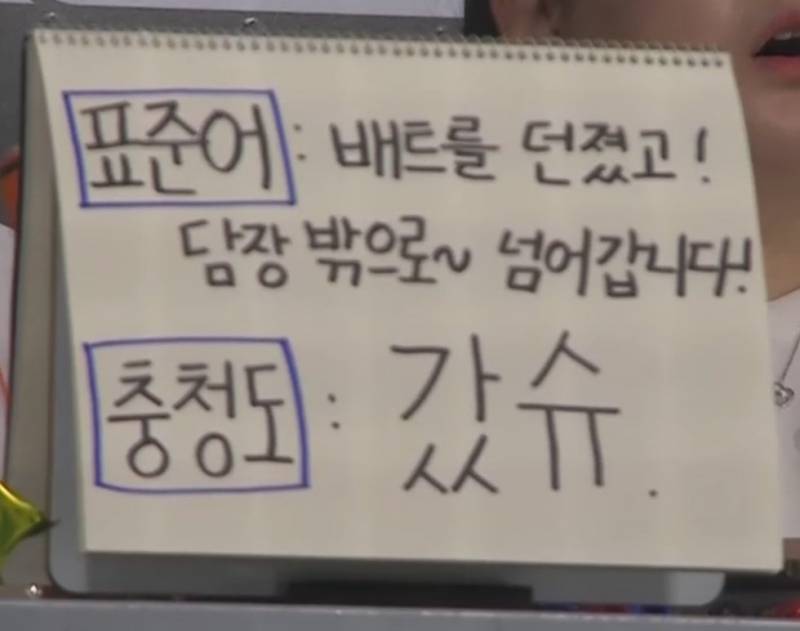 표준어 : 배트를 던졌고!
담장 밖으로~ 넘어갑니다!
충청도 : 갔슈.